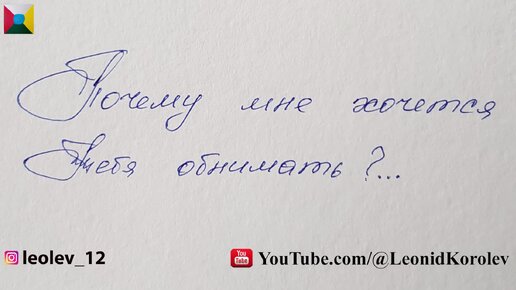 Почему мне хочется
Тебя обнимать?...
leolev_12
YouTube.com/@LeonidKorolev